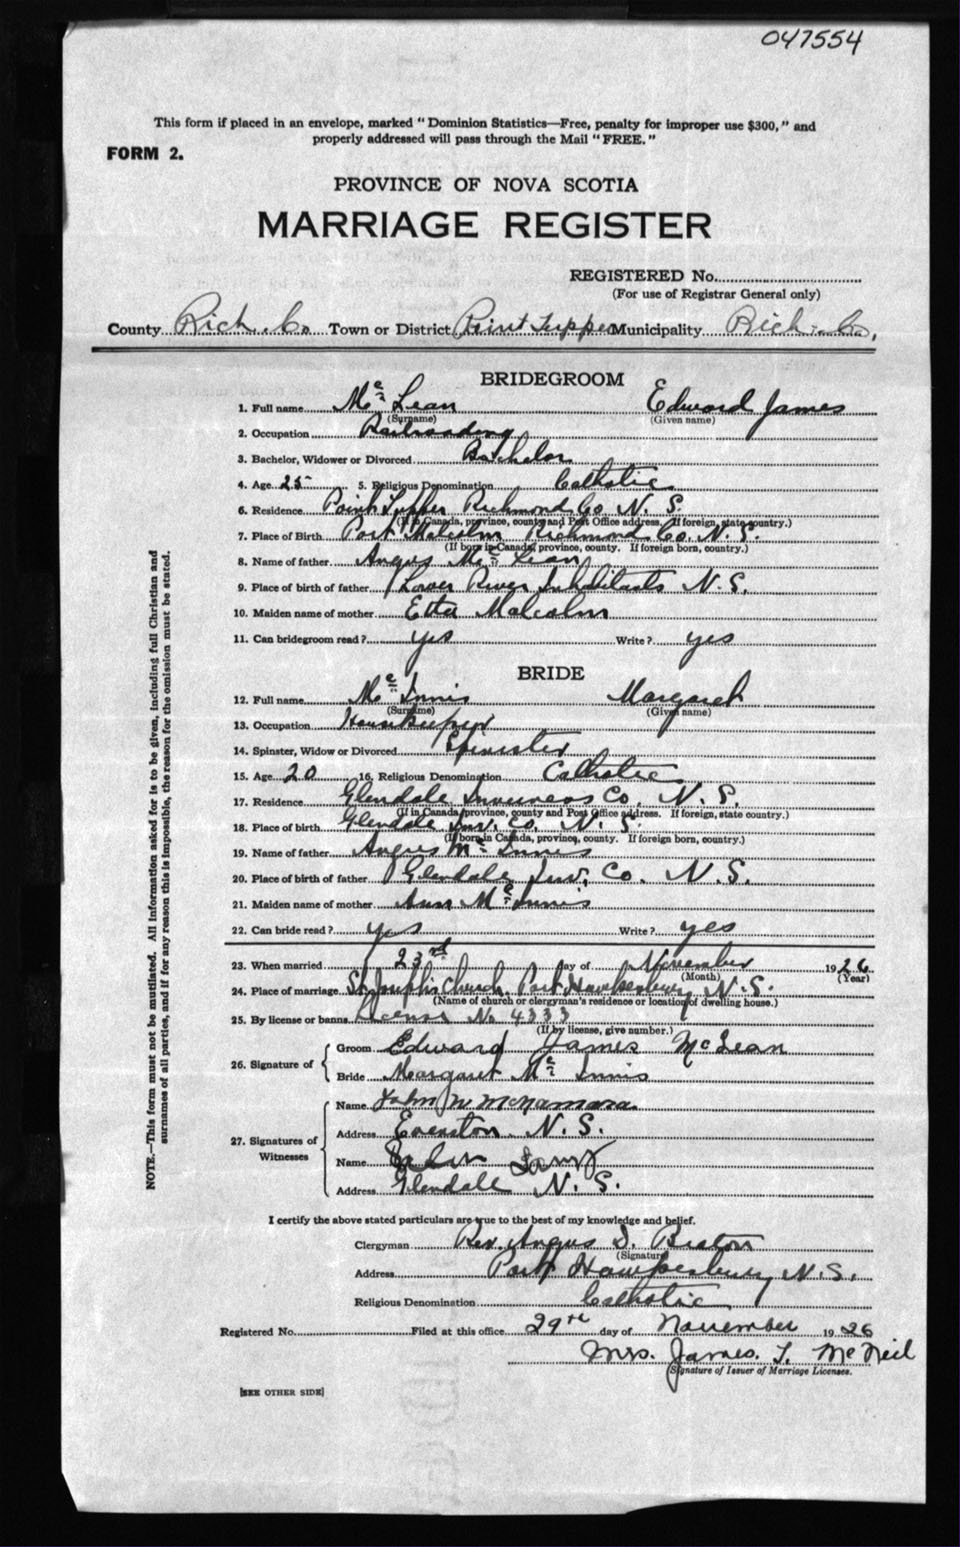 047554
This form if placed in an envelope, marked "Dominion Statistics—Free, penalty for improper use $300," and
properly addressed will pass through the Mail "FREE."
FORM 2.
PROVINCE OF NOVA SCOTIA
MARRIAGE REGISTER
REGISTERED No.
(For use of Registrar General only)
County Rich. Co Town or District Point Tupper Municipality Rich. Co,
BRIDEGROOM
1. Full name Mc Lean Edward James
(Surname) (Given name)
2. Occupation Railroading
3. Bachelor, Widower or Divorced Bachelor
4. Age 25 5. Religious Denomination Catholic
6. Residence Point Tupper Richmond Co N. S.
(If in Canada, province, county and Post Office address. If foreign, state country.)
7. Place of Birth Port Malcolm Richmond Co. N. S.
(If born in Canada, province, county. If foreign born, country.)
8. Name of father Angus Mc Lean
9. Place of birth of father Lower River Inhabitants N. S.
10. Maiden name of mother Etta Malcolm
11. Can bridegroom read? yes Write? yes
BRIDE
12. Full name Mc Innis Margaret
(Surname) (Given name)
13. Occupation Housekeeper
14. Spinster, Widow or Divorced Spinster
15. Age 20 16. Religious Denomination Catholic
17. Residence Glendale Inverness Co. N. S.
(If in Canada, province, county and Post Office address. If foreign, state country.)
18. Place of birth Glendale Inv. Co. N. S.
(If born in Canada, province, county. If foreign born, country.)
19. Name of father Angus Mc Innis
20. Place of birth of father Glendale Inv. Co. N. S.
21. Maiden name of mother Ann Mc Innis
22. Can bride read? yes Write? yes
23. When married 23rd day of November 1926
(Month) (Year)
24. Place of marriage St Joseph's Church Port Hawkesbury N. S.
(Name of church or clergyman's residence or location of dwelling house.)
25. By license or banns License No 4333
(If by license, give number.)
26. Signature of
Groom Edward James McLean
Bride Margaret Mc Innis
27. Signatures of Witnesses
Name John W McNamara
Address Evanston N. S.
Name
Address Glendale N. S.
I certify the above stated particulars are true to the best of my knowledge and belief.
Clergyman Rev. Angus D. Beaton
(Signature)
Address Port Hawkesbury N. S.
Religious Denomination Catholic
Registered No. Filed at this office 29th day of November 1926
Mrs. James. T. McNeil
(Signature of Issuer of Marriage Licenses.
[SEE OTHER SIDE]
NOTE.—This form must not be mutilated. All information asked for is to be given, including full Christian and
surnames of all parties, and if for any reason this is impossible, the reason for the omission must be stated.